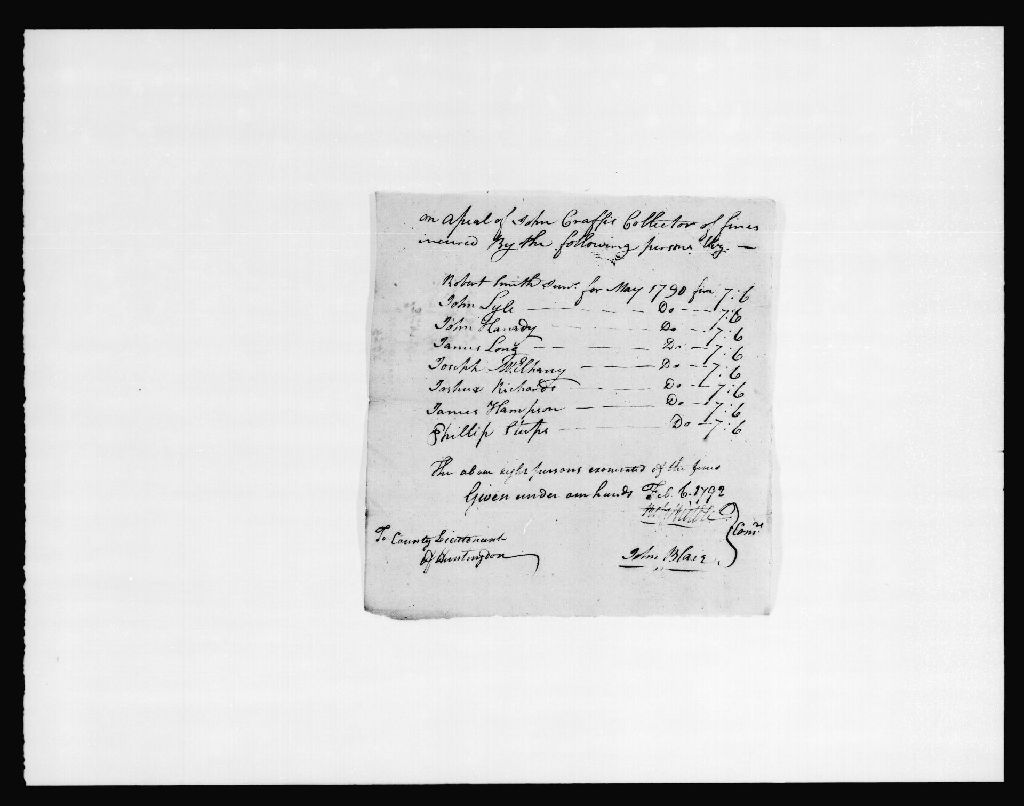 on Apeal of John Craffis Collector of fines
incured By the following persons Viz. —
Robert Smith Junr. for May 1790 fine 7:6
John Lyle — — — — Do — 7:6
John Hanady — — — Do — 7:6
James Long — — — Do — 7:6
Joseph McElhany — — — Do — 7:6
Joshua Richards — — — Do — 7:6
James Hampson — — — Do — 7:6
Phillip — — — Do — 7:6
The above eight persons exonerated of the fines
Given under our hands Feb. 6. 1792
To County Lieutenant
Of Huntingdon
John Blair
Comrs